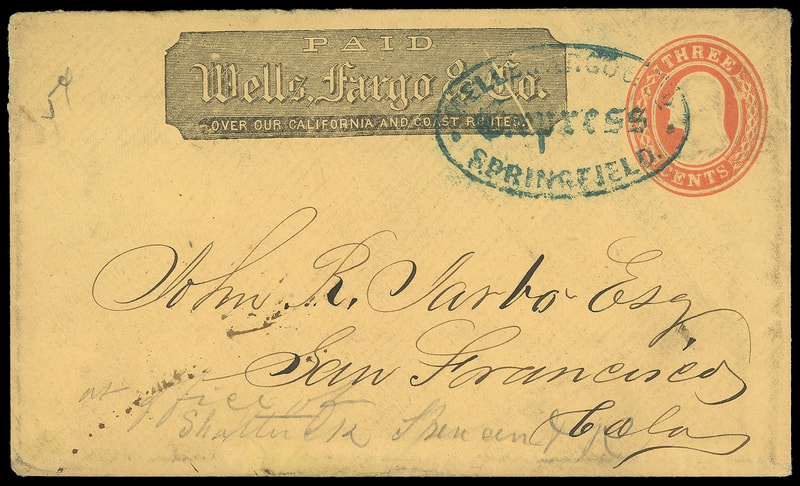 PAID
Wells, Fargo & Co.
OVER OUR CALIFORNIA AND COAST ROUTES.
WELLS, FARGO & CO.
Express
SPRINGFIELD.
THREE
CENTS
54
John R. Jarbo Esq
San Francisco
Cala
at office of
Shattuck Spencer &